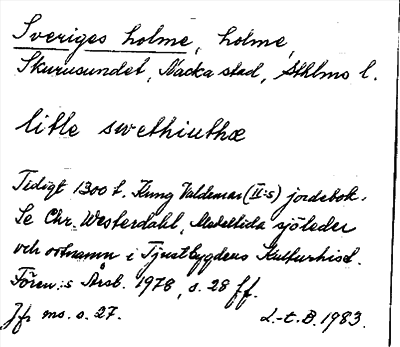 Sveriges holme, holme,
Skurusundet, Nacka stad, Sthlms l.
litle swethiuthæ
Tidigt 1300 t. Kung Valdemars (II:s) jordebok.
Se Chr. Westerdahl, Medeltida sjöleder
och ortnamn i Tjustbygdens Kulturhist.
Fören:s Årsb. 1978, s. 28 ff.
Jfr ms. s. 27. L.-t. B. 1983.